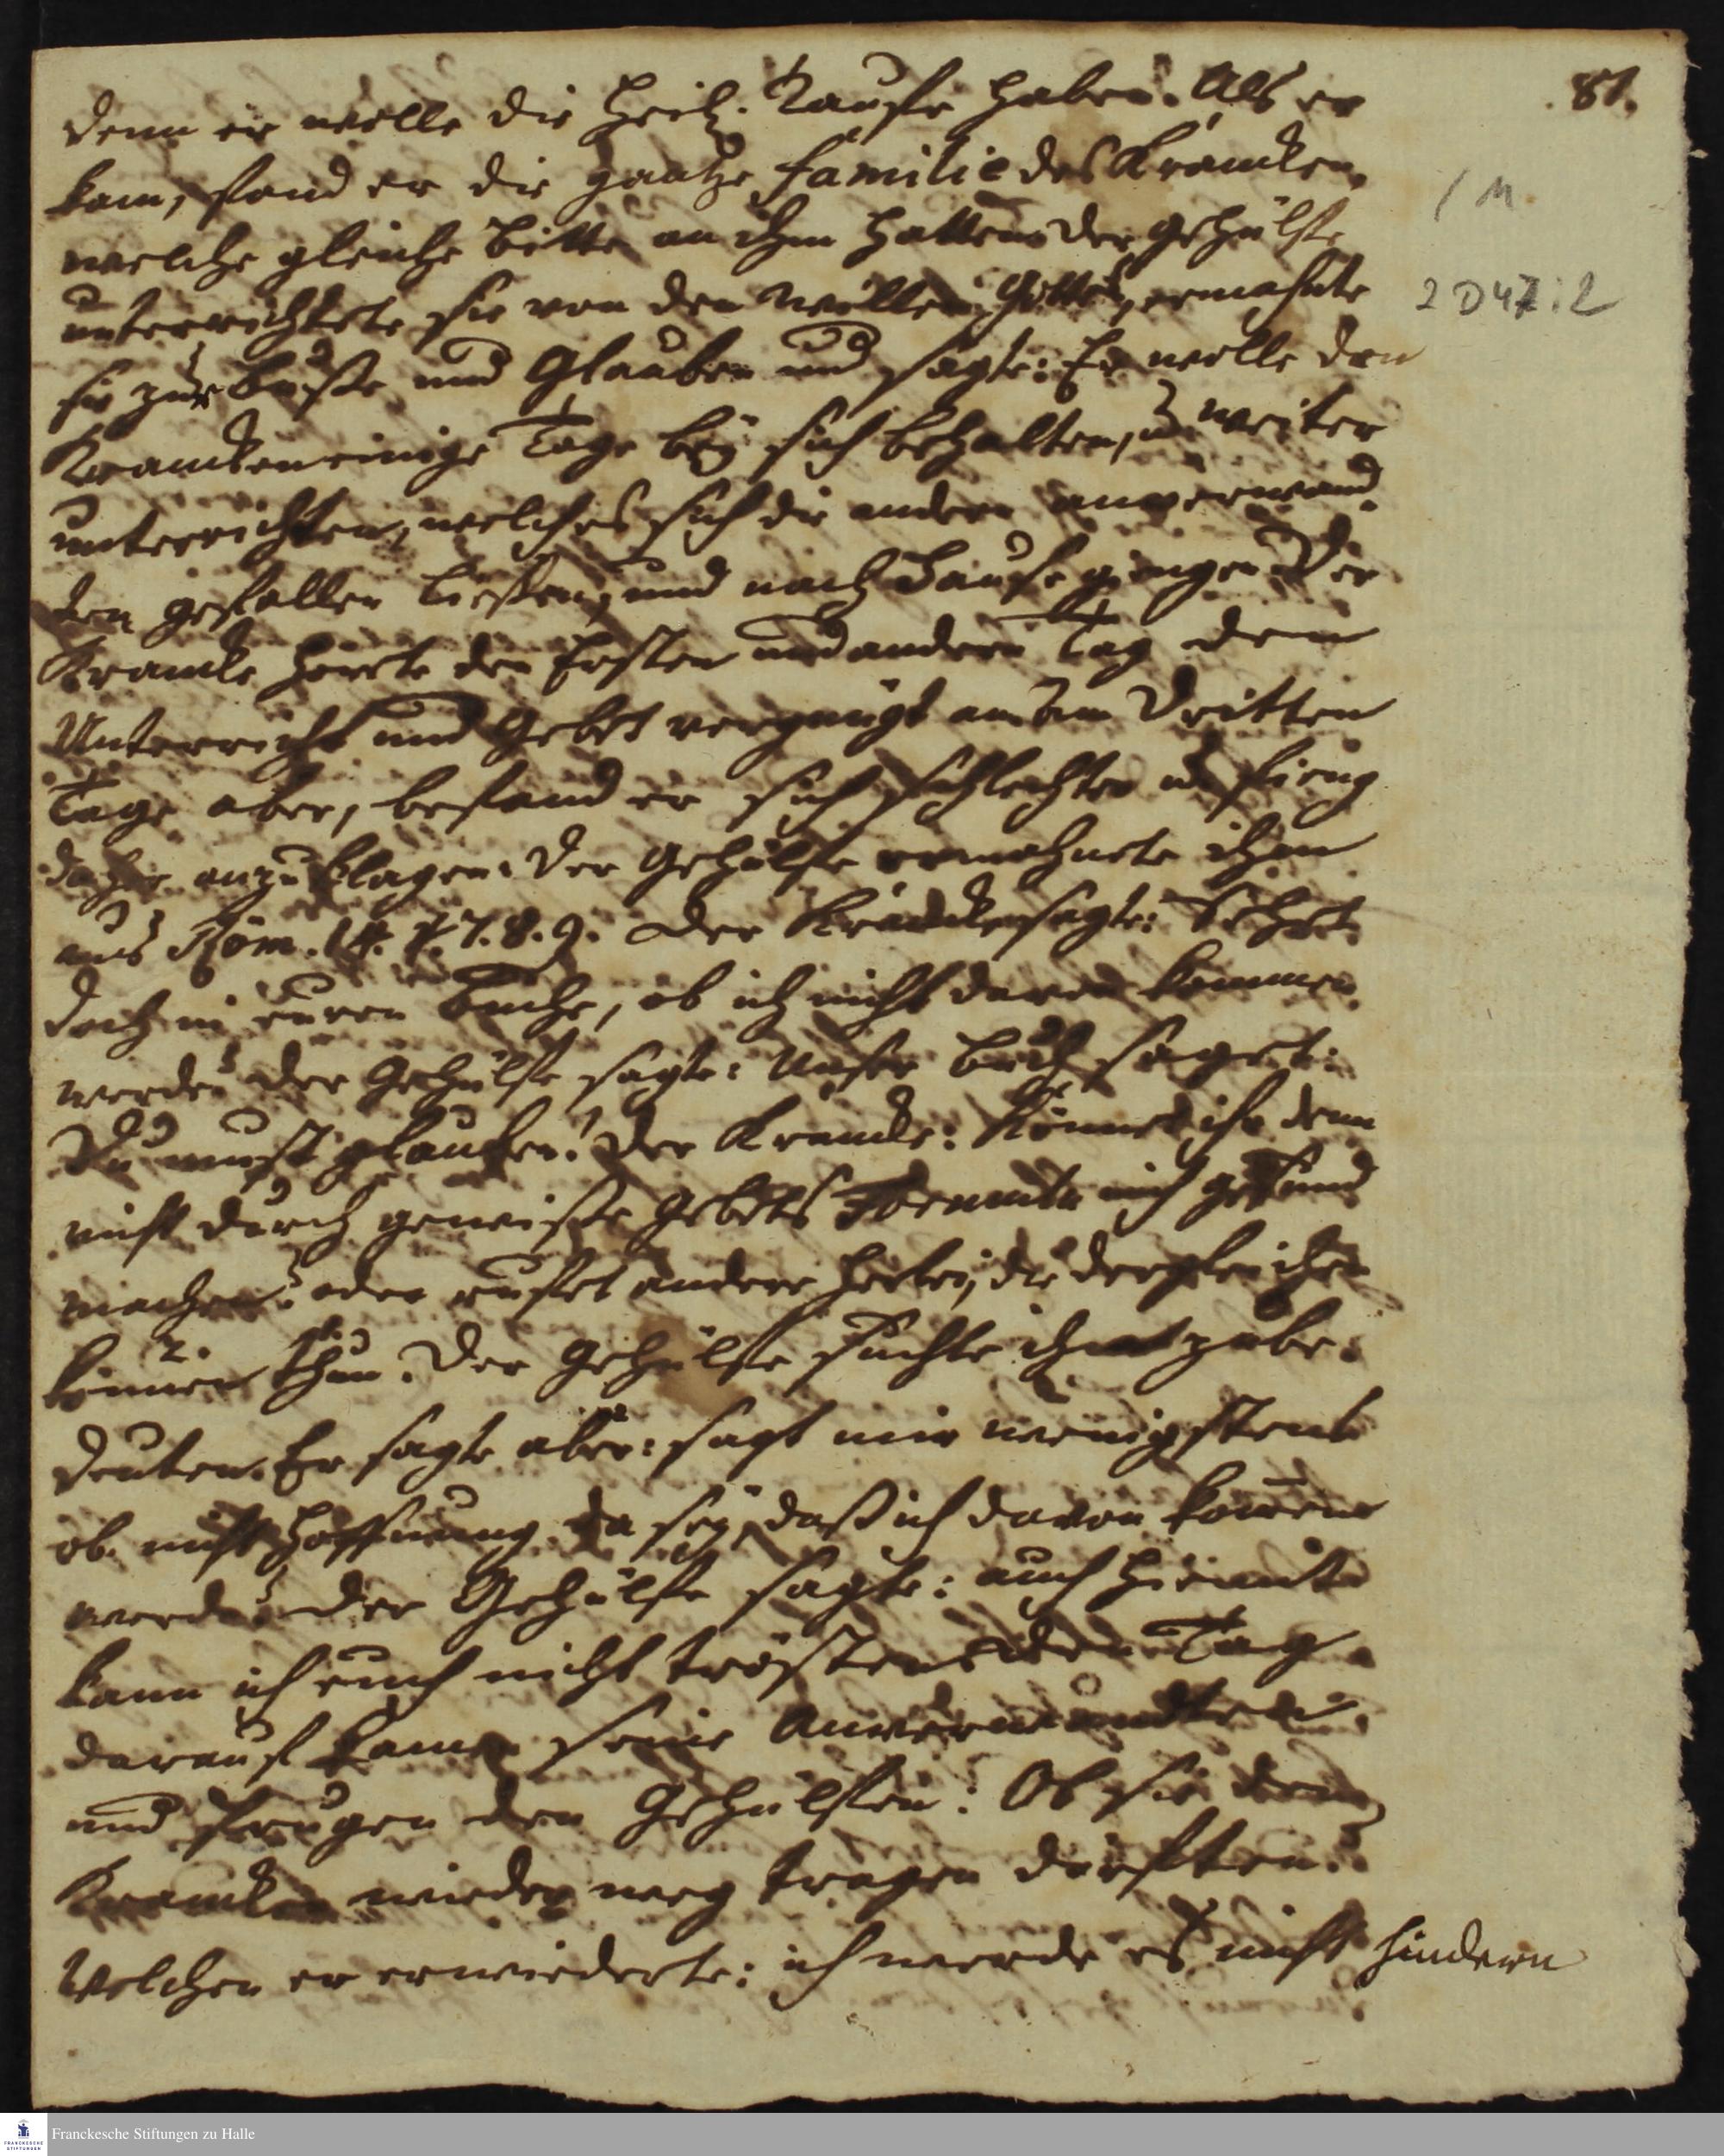 81.
denn er wolle die Heil. Tauffe haben. Als er
kam, fand er die gantze familie des Krancken,
1 M
welche gleiche Bitte an ihm hatten. der Gehülffe
unterrichtete sie von den Willen Gottes, ermahnte
2 D 47:2
sie zur Buße und Glauben und sagte: Er wolle den
Krancken einige Tage bey sich behalten, u. weiter
unterrichten, welches sich die andern anverwand
ten gefallen ließen, und nach Hause gingen. Der
Krancke hörte den Ersten und andern Tag den
Unterricht und Gebet vergnügt an. am Dritten
Tage aber, befand er sich schlechter u. fieng
daher an zu klagen. Der Gehülfe ermahnete ihn
aus Röm. 14. v. 7. 8. 9. der Krancke sagte: Sehet
doch in euren Buche, ob ich nicht davon kommen
werde? der Gehülfe sagte: Unser Buch saget:
Du must glauben! Der Krancke: Könnet ihr denn
nicht durch gewiße Gebets Formuln mich gesund
machen? oder ruffet andere herbey, die dergleichen
können thun. Der Gehülfe suchte ihm zu be-
deuten. Er sagte aber: sagt mir wenigstens
ob nicht Hoffnung da sey, daß ich davon kommen
werde? der Gehülfe sagte: auch hiermit
kann ich euch nicht trösten. den Tag
darauf kamen seine Anverwandten
und frugen den Gehülfen: Ob sie den
Krancken wieder weg tragen dörfften?
Welchen er erwiederte: ich werde es nicht hindern
Franckesche Stiftungen zu Halle
FRANCKESCHE
STIFTUNGEN